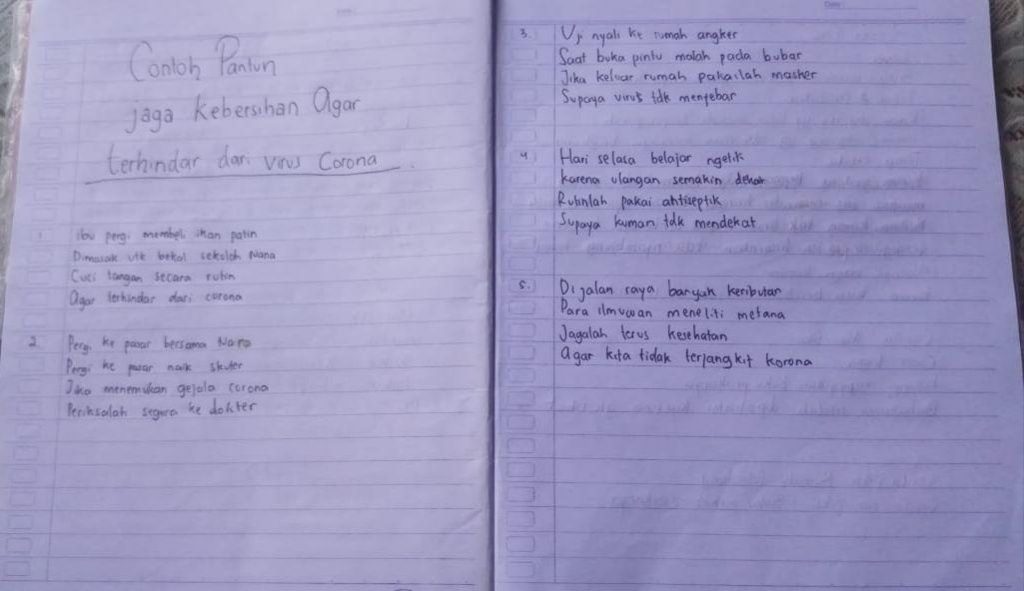 Contoh Pantun
jaga kebersihan Agar
terhindar dari virus Corona
1. ibu pergi membeli ikan patin
Dimasak utk bekal sekolah Nana
Cuci tangan secara rutin
Agar terhindar dari corona
2. Pergi ke pasar bersama Nana
Pergi ke pasar naik skuter
Jika menemukan gejala corona
Periksalah segera ke dokter
Date:
3. Uji nyali ke rumah angker
Saat buka pintu malah pada bubar
Jika keluar rumah pakailah masker
Supaya virus tdk menyebar
4 Hari selasa belajar ngetik
Karena ulangan semakin dekat
Rutinlah pakai antiseptik
Supaya kuman tdk mendekat
5. Dijalan raya banyak keributan
Para ilmuwan meneliti metana
Jagalah terus kesehatan
agar kita tidak terjangkit korona